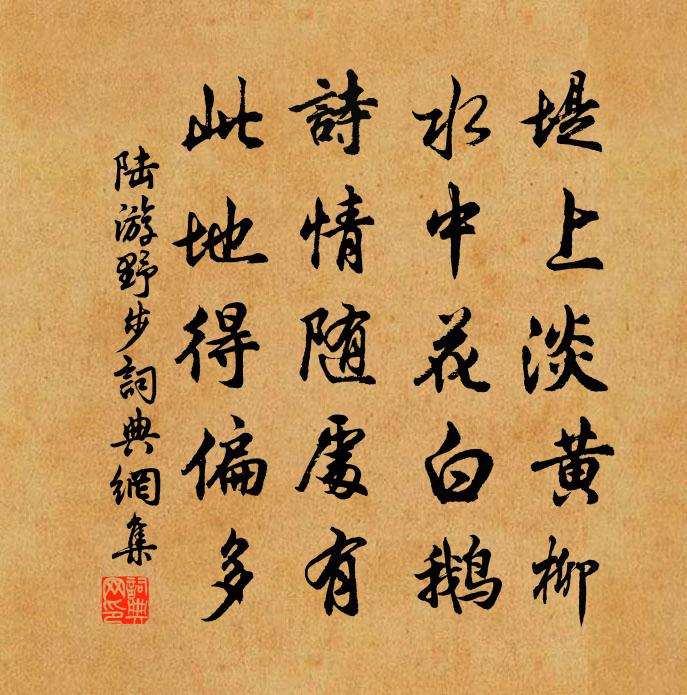 堤上淡黄柳
水中花白鹅
詩情随處有
此地得偏多
陆游野步詞典網集
詞典網印